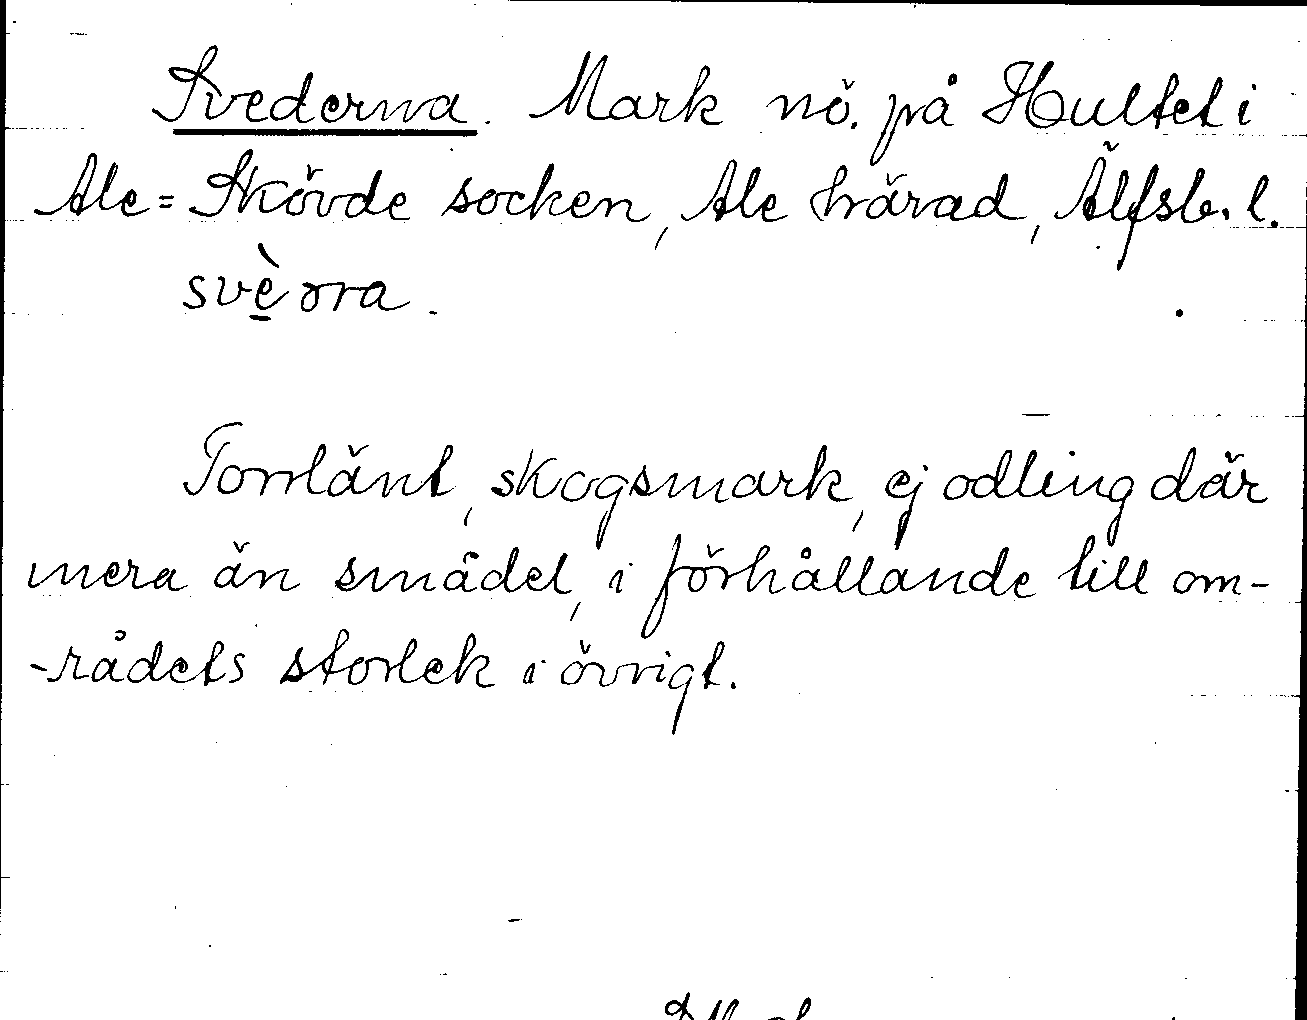 Svederna. Mark nö. på Hultet i
Ale=Skövde socken, Ale härad, Älfsb. l.
svè̱rra.
Torrlänt, skogsmark, ej odling där
mera än smådel, i förhållande till om-
-rådets storlek i övrigt.